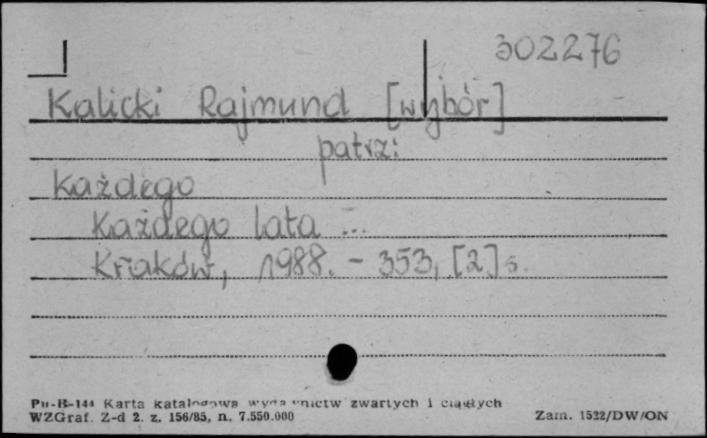 302276
Kalicki Rajmund [wybór]
patrz:
Każdego
Każdego lata ...
Kraków, 1988. - 353, [2] s.
Pu-B-144 Karta katalogowa wydawnictw zwartych i ciągłych
WZGraf. Z-d 2. z. 156/85, n. 7.550.000
Zam. 1522/DW/ON